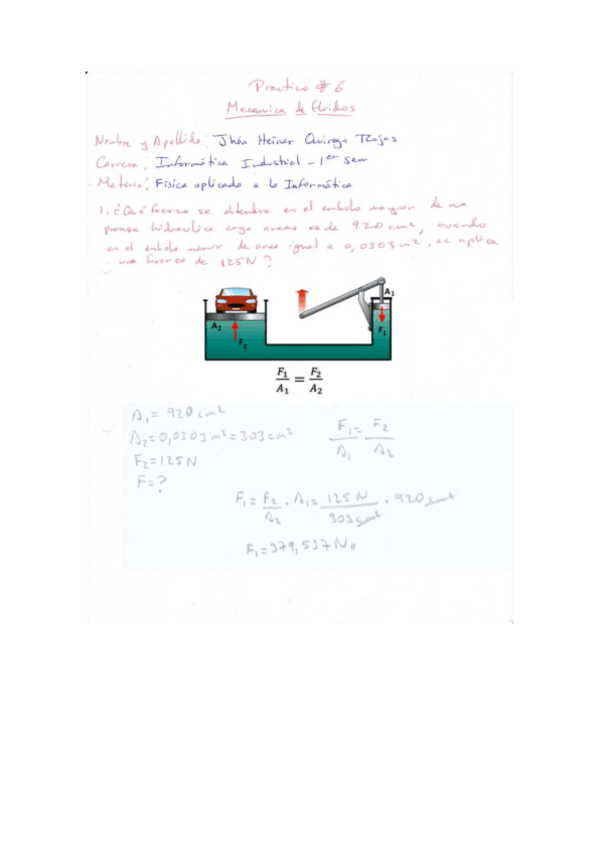 Practico #6
Mecanica de fluidos
Nombre y Apellido: Jhón Heiner Quiroga Rojas
Carrera: Informática Industrial - 1er Sem
Materia: Física aplicada a la Informática
1. ¿Qué fuerza se obtendra en el embolo mayor de una
prensa hidraulica cuya area es de 920 cm², cuando
en el embolo menor de area igual a 0,0303 m², se aplica
una fuerza de 125N?
A₁
A₂
F₂
F₁
F₁/A₁ = F₂/A₂
A₁ = 920 cm²
A₂ = 0,0303 m² = 303 cm²
F₂ = 125N
F = ?
F₁/A₁ = F₂/A₂
F₁ = F₂/A₂ . A₁ = 125 N/303 cm² . 920 cm²
F₁ = 379,537 N //